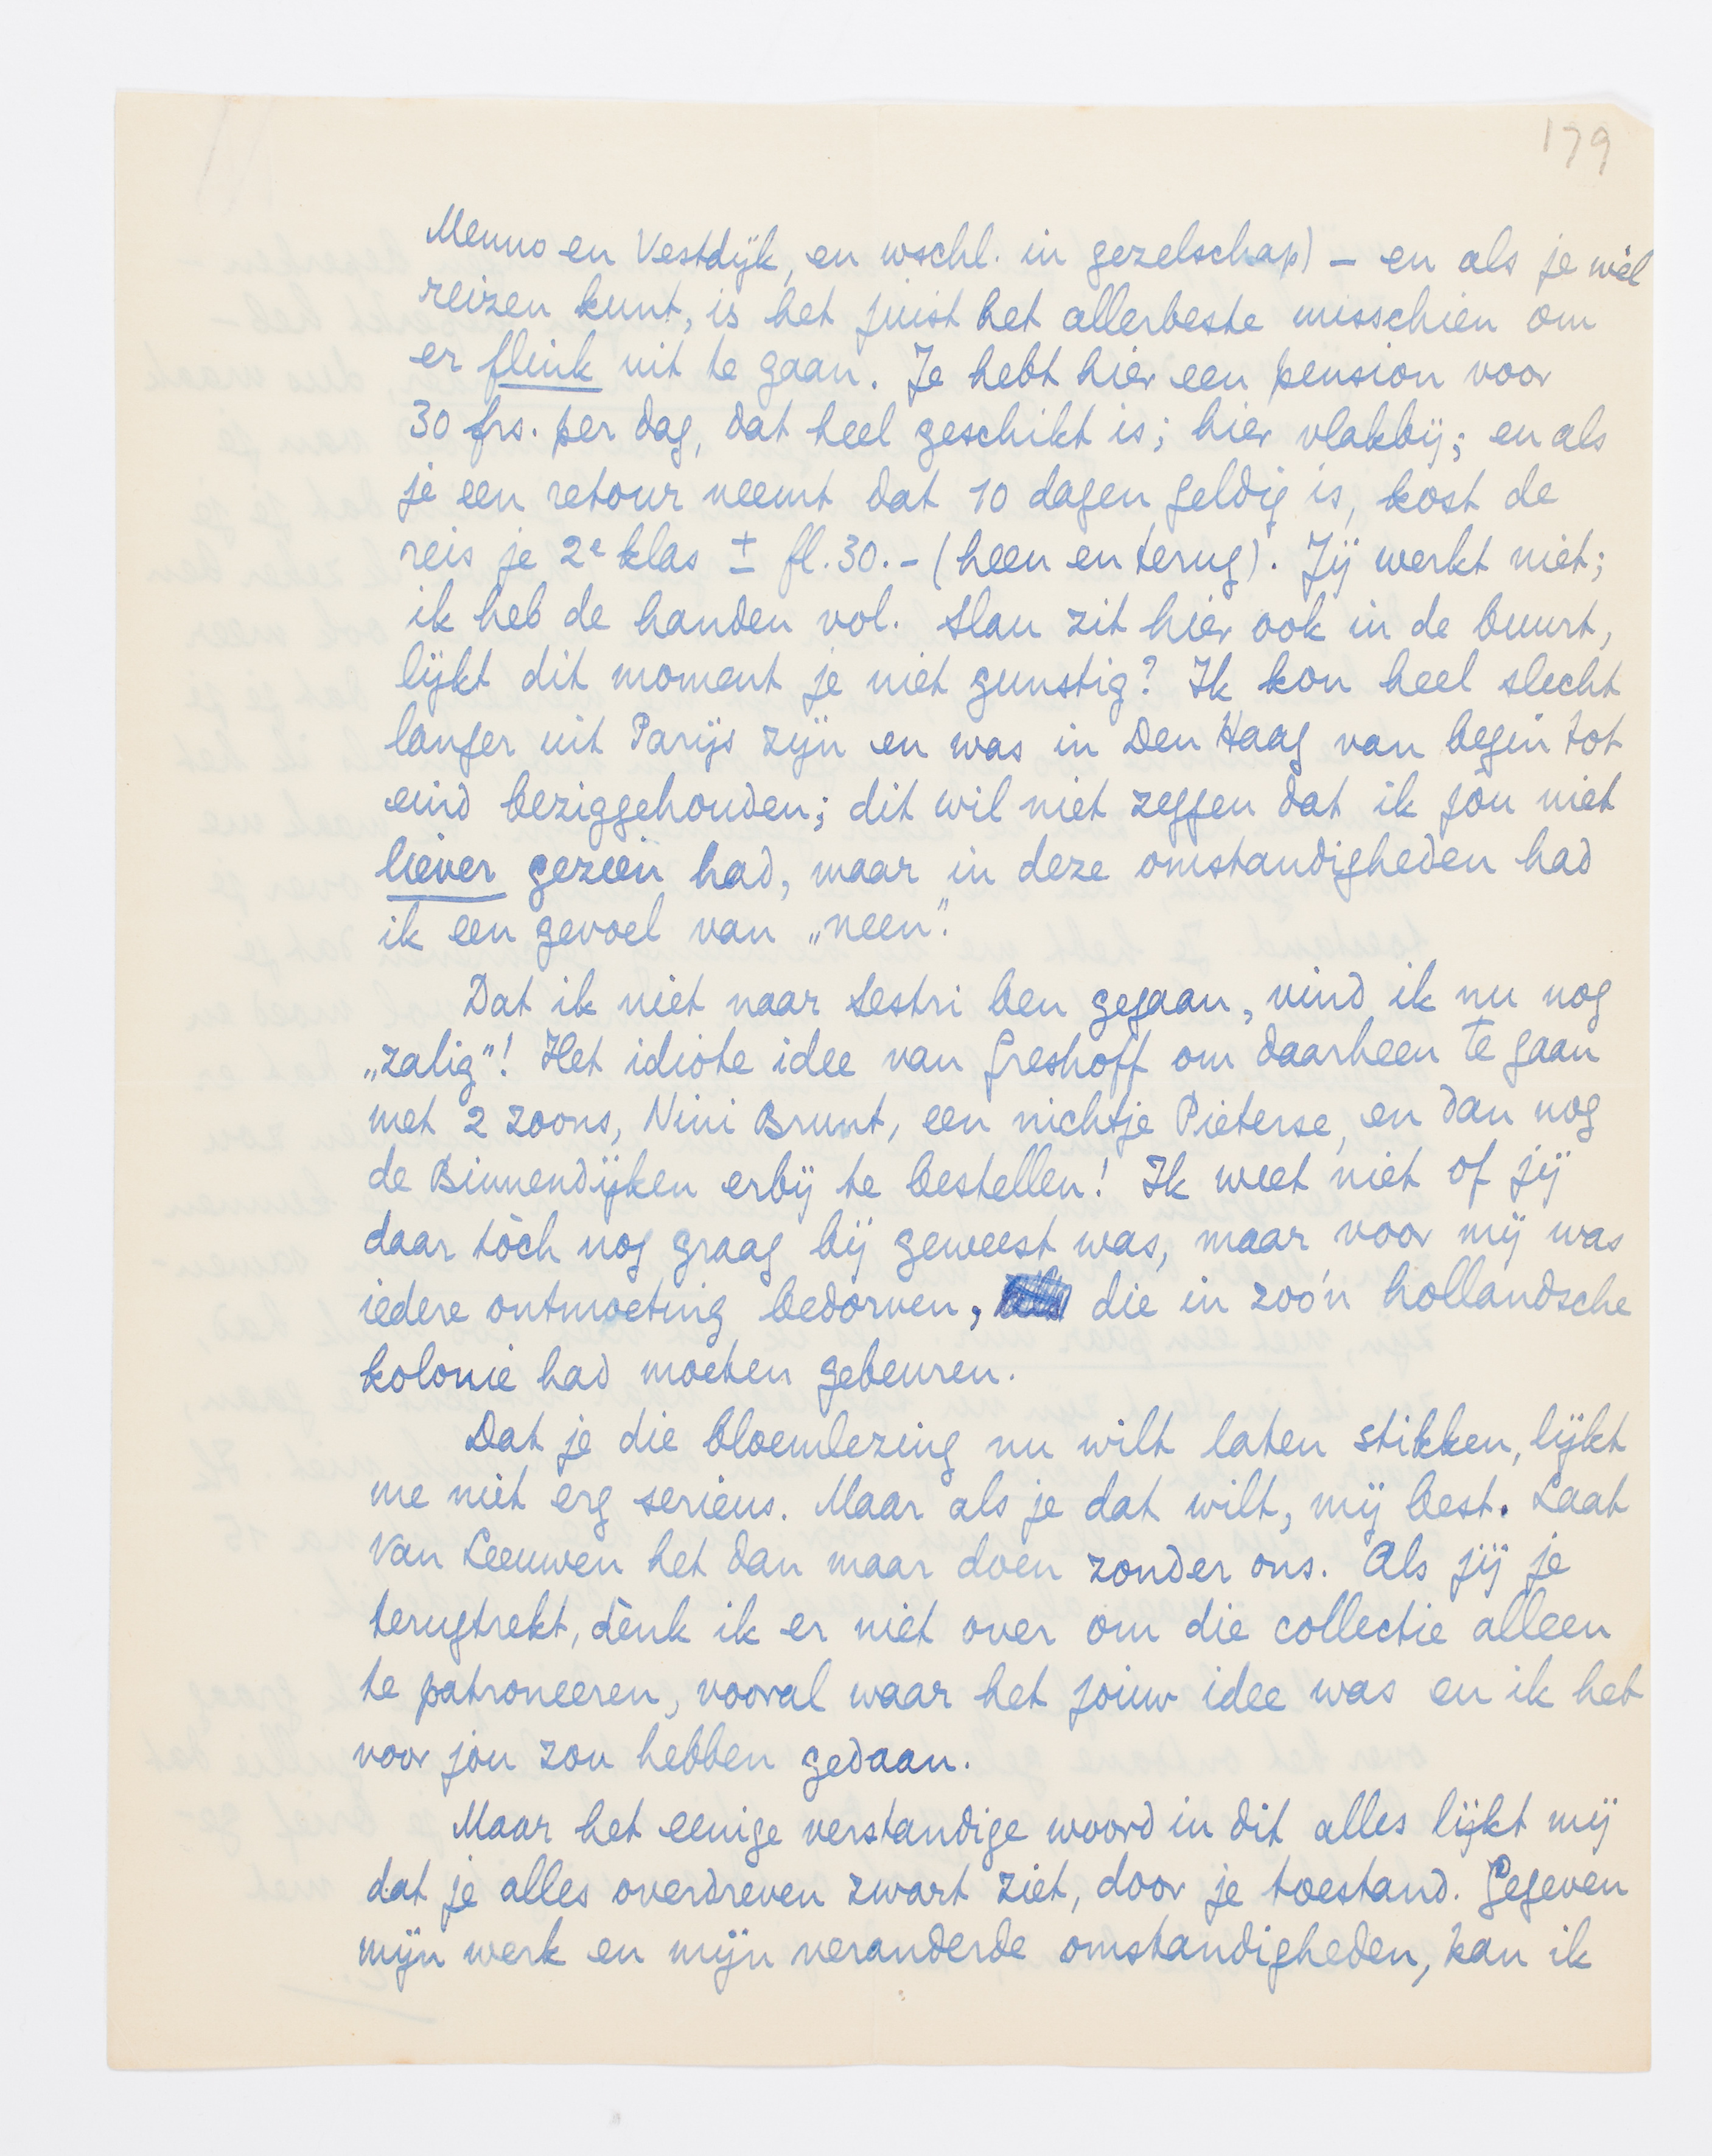 179
Menno en Vestdijk, en wschl. in gezelschap) – en als je wèl
reizen kunt, is het juist het allerbeste misschien om
er flink uit te gaan. Je hebt hier een pension voor
30 frs. per dag, dat heel geschikt is; hier vlakbij; en als
je een retour neemt dat 10 dagen geldig is, kost de
reis je 2e klas ± fl. 30.– (heen en terug). Jij werkt niet;
ik heb de handen vol. Slau zit hier ook in de buurt,
lijkt dit moment je niet gunstig? Ik kon heel slecht
langer uit Parijs zijn en was in Den Haag van begin tot
eind beziggehouden; dit wil niet zeggen dat ik jòu niet
liever gezien had, maar in deze omstandigheden had
ik een gevoel van „neen".
Dat ik niet naar Sestri ben gegaan, vind ik nu nog
„zalig"! Het idiote idee van Greshoff om daarheen te gaan
met 2 zoons, Nini Brunt, een nichtje Pieterse, en dan nog
de Binnendijken erbij te bestellen! Ik weet niet of jij
daar tòch nog graag bij geweest was, maar voor mij was
iedere ontmoeting bedorven, die in zoo'n hollandsche
kolonie had moeten gebeuren.
Dat je die bloemlezing nu wilt laten stikken, lijkt
me niet erg serieus. Maar als je dat wilt, mij best. Laat
Van Leeuwen het dan maar doen zonder ons. Als jij je
terugtrekt, dènk ik er niet over om die collectie alleen
te patroneeren, vooral waar het jouw idee was en ik het
voor jou zou hebben gedaan.
Maar het eenige verstandige woord in dit alles lijkt mij
dat je alles overdreven zwart ziet, door je toestand. Gegeven
mijn werk en mijn veranderde omstandigheden, kan ik